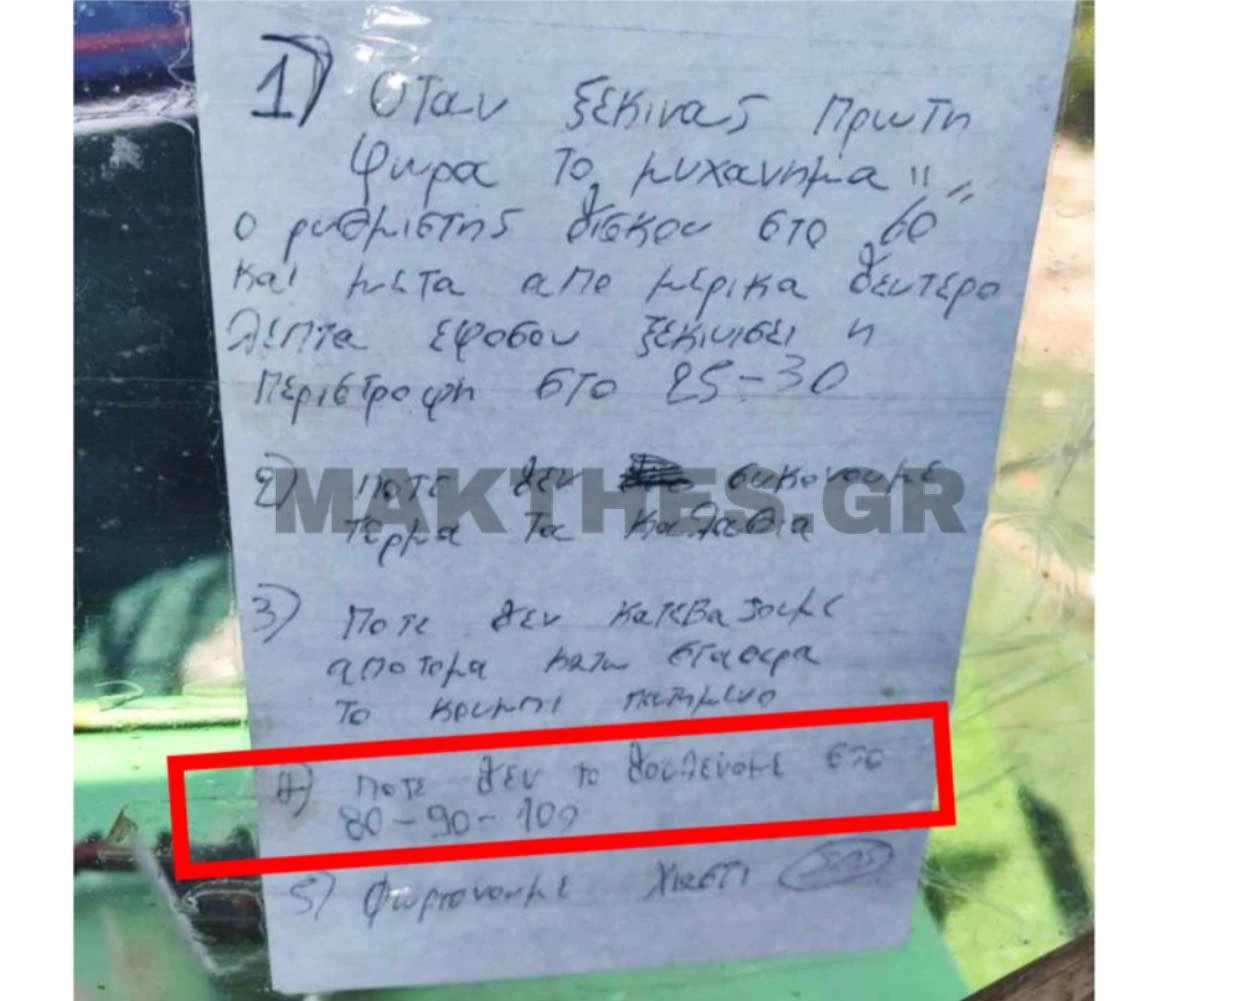 1) Οταν ξεκινας Πρωτη
φωρα το μυχανημα " "
ο ρυθμιστης δισκου στο 60
και μετα απο μερικα δευτερο
λεπτα εφοσον ξεκινισει η
Περιστροφη στο 25-30
2) Ποτε δεν συκονουμε
τερμα τα καλαθια
MAKTHES.GR
3) Ποτε δεν κατεβαζουμε
αποτομα κατω σταθερα
το κουμπι πατημενο
4) Ποτε δεν το δουλευομε στο
80-90-100
5) Φωρτονουμε χιαστι